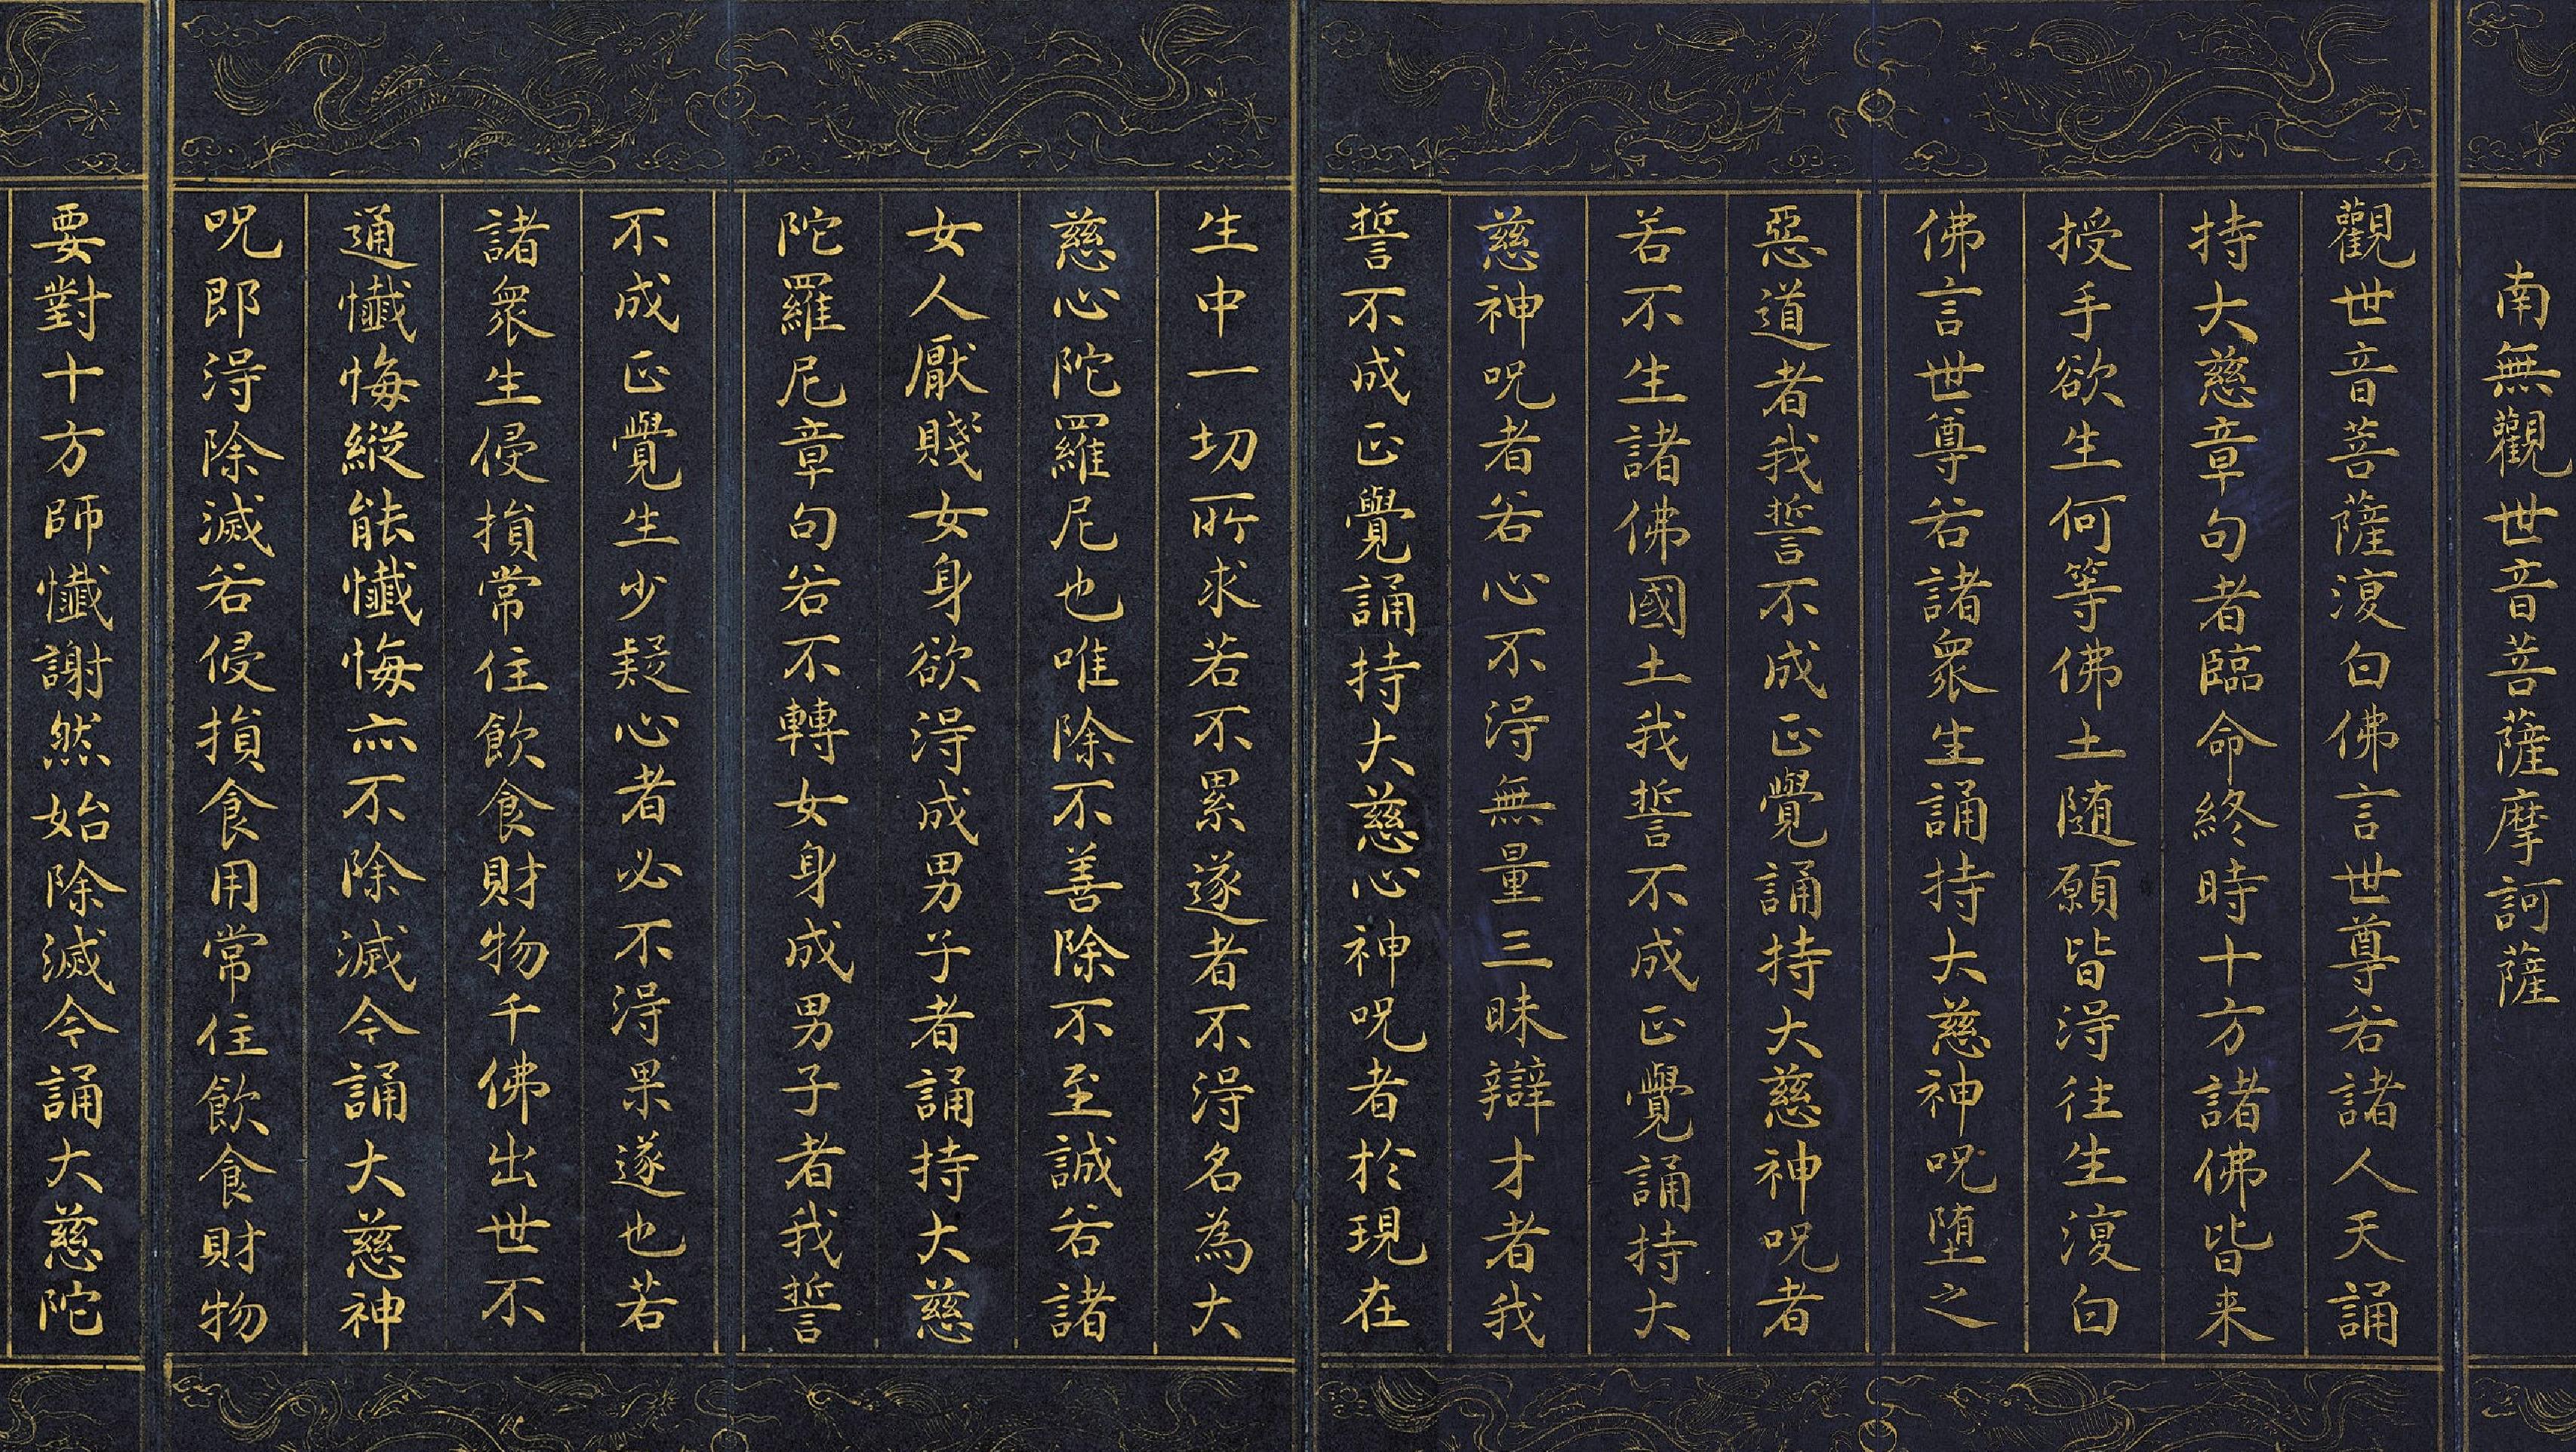 南無觀世音菩薩摩訶薩
觀世音菩薩復白佛言世尊若諸人天誦
持大慈章句者臨命終時十方諸佛皆来
授手欲生何等佛土随願皆得往生復白
佛言世尊若諸衆生誦持大慈神呪堕之
惡道者我誓不成正覺誦持大慈神呪者
若不生諸佛國土我誓不成正覺誦持大
慈神呪者若心不得無量三昧辯才者我
誓不成正覺誦持大慈心神呪者於現在
生中一切所求若不累遂者不得名為大
慈心陀羅尼也唯除不善除不至誠若諸
女人厭賤女身欲得成男子者誦持大慈
陀羅尼章句若不轉女身成男子者我誓
不成正覺生少疑心者必不得果遂也若
諸衆生侵損常住飲食財物千佛出世不
通懺悔縱能懺悔亦不除滅今誦大慈神
呪即得除滅若侵損食用常住飲食財物
要對十方師懺謝然始除滅今誦大慈陀